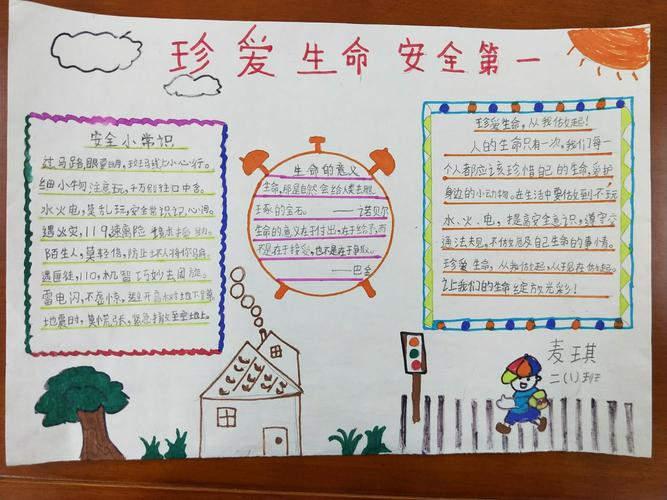 珍爱生命 安全第一
安全小常识
过马路,眼要明,斑马线上小心行。
细小物,注意玩,千万别往口中含。
水火电,莫乱玩,安全常识记心间。
遇火灾,119速离险
陌生人,莫轻信,防止坏人将你骗。
遇匪徒,110,机智巧妙去周旋。
雷电闪,不
地震时,莫慌张,
生命的意义
生命,那是自然会给人类去雕
琢的宝石。——诺贝尔
生命的意义在于付出,在于给予,而
不是在于接受,也不是在于争取。
——巴金
珍爱生命,从我做起!
人的生命只有一次,我们每一
个人都应该珍惜自己的生命,爱护
身边的小动物。在生活中要做到不玩
水、火、电,提高安全意识,遵守交
通法规,不做危及自己生命的事情。
珍爱生命,从我做起,从现在做起。
让我们的生命绽放光彩!
麦琪
二(1)班